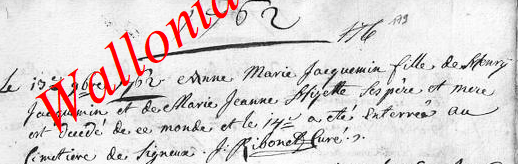 1762
176 179
Wallonia
Le 13e 9bre 1762 Anne Marie Jacquemin fille de Henry
Jacquemin et de Marie Jeanne Hizette ses père et mere
est decédé de ce monde et le 14e a été Enterrée au
Cimetiere de Signeux. J: Ribonet Curé